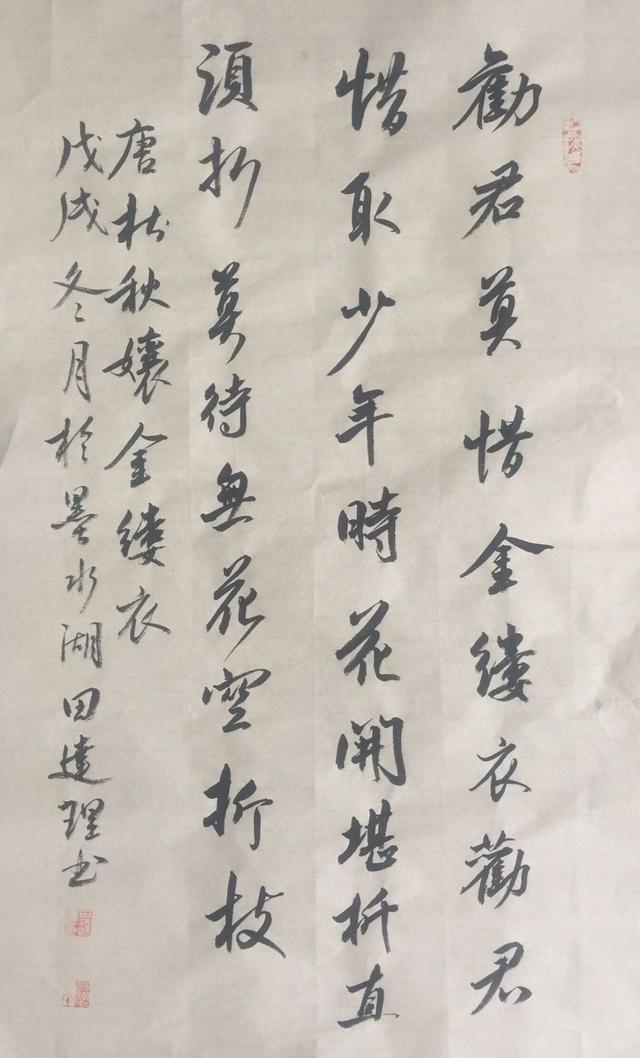 勸君莫惜金缕衣勸君
惜取少年時花開堪折直
須折莫待無花空折枝
唐杜秋孃金缕衣
戊戌冬月於墨水湖田達理书